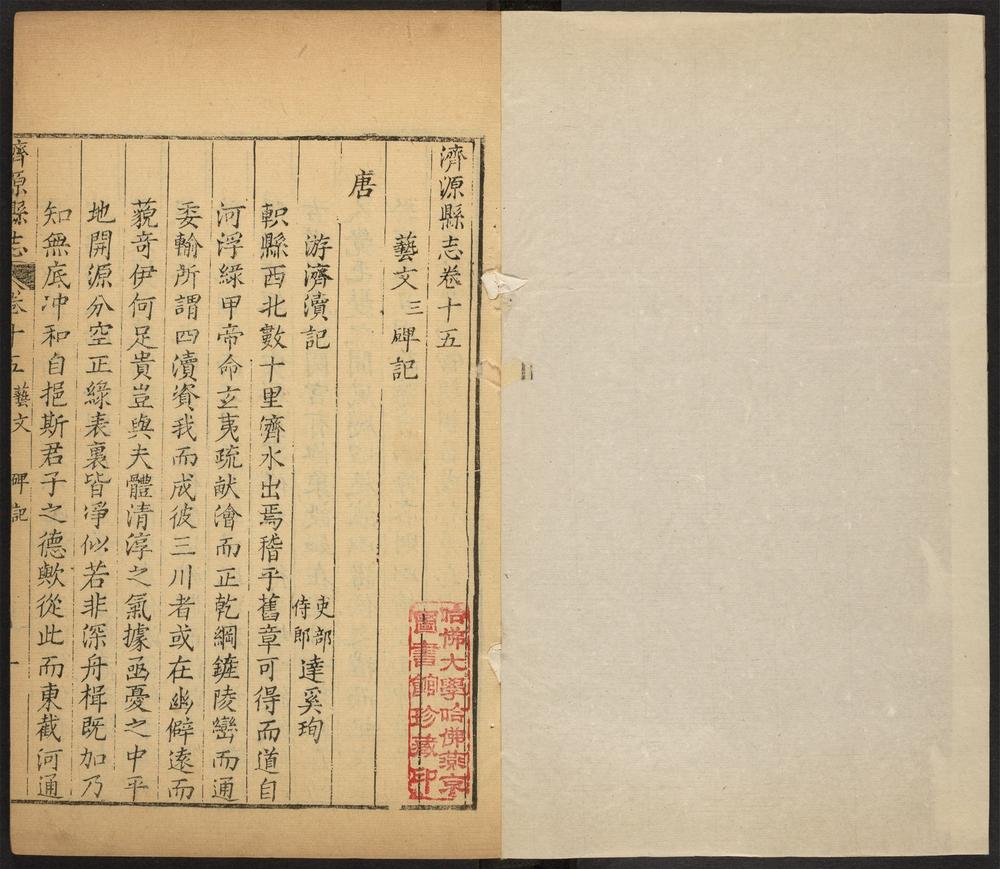 濟源縣志卷十五
藝文三 碑記
唐
游濟瀆記
吏部侍郎 達奚珣
軹縣西北數十里濟水出焉稽乎舊章可得而道自
河浮綠甲帝命玄夷疏畎澮而正乾綱鏟陵巒而通
委輸所謂四瀆資我而成彼三川者或在幽僻遠而
藐奇伊何足貴豈與夫體清淳之氣據函憂之中平
地開源分空正綠表裏皆淨似若非深舟楫既加乃
知無底冲和自挹斯君子之德歟從此而東截河通
濟源縣志 卷十五 藝文 碑記 一
哈佛大學哈佛燕京
圖書館珍藏印